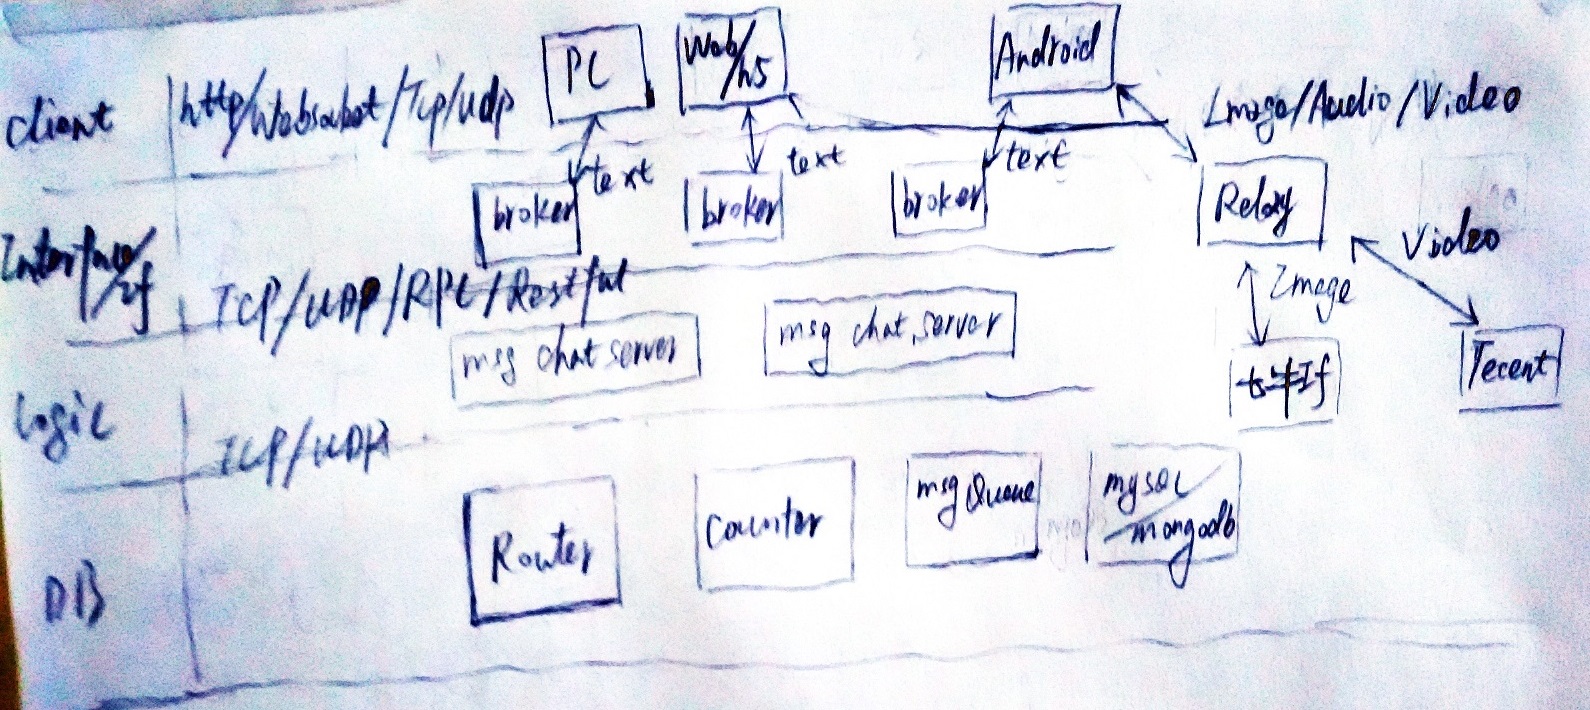 PC
Web/h5
Android
client
http/Websocket/Tcp/udp
Image/Audio/Video
text
text
text
broker
broker
broker
Relay
Interface/If
Video
TCP/UDP/RPC/Restful
Image
msg chat server
msg chat server
If
Tecent
Logic
TCP/UDP
Router
Counter
msg Queue
mysql
/mongodb
DB